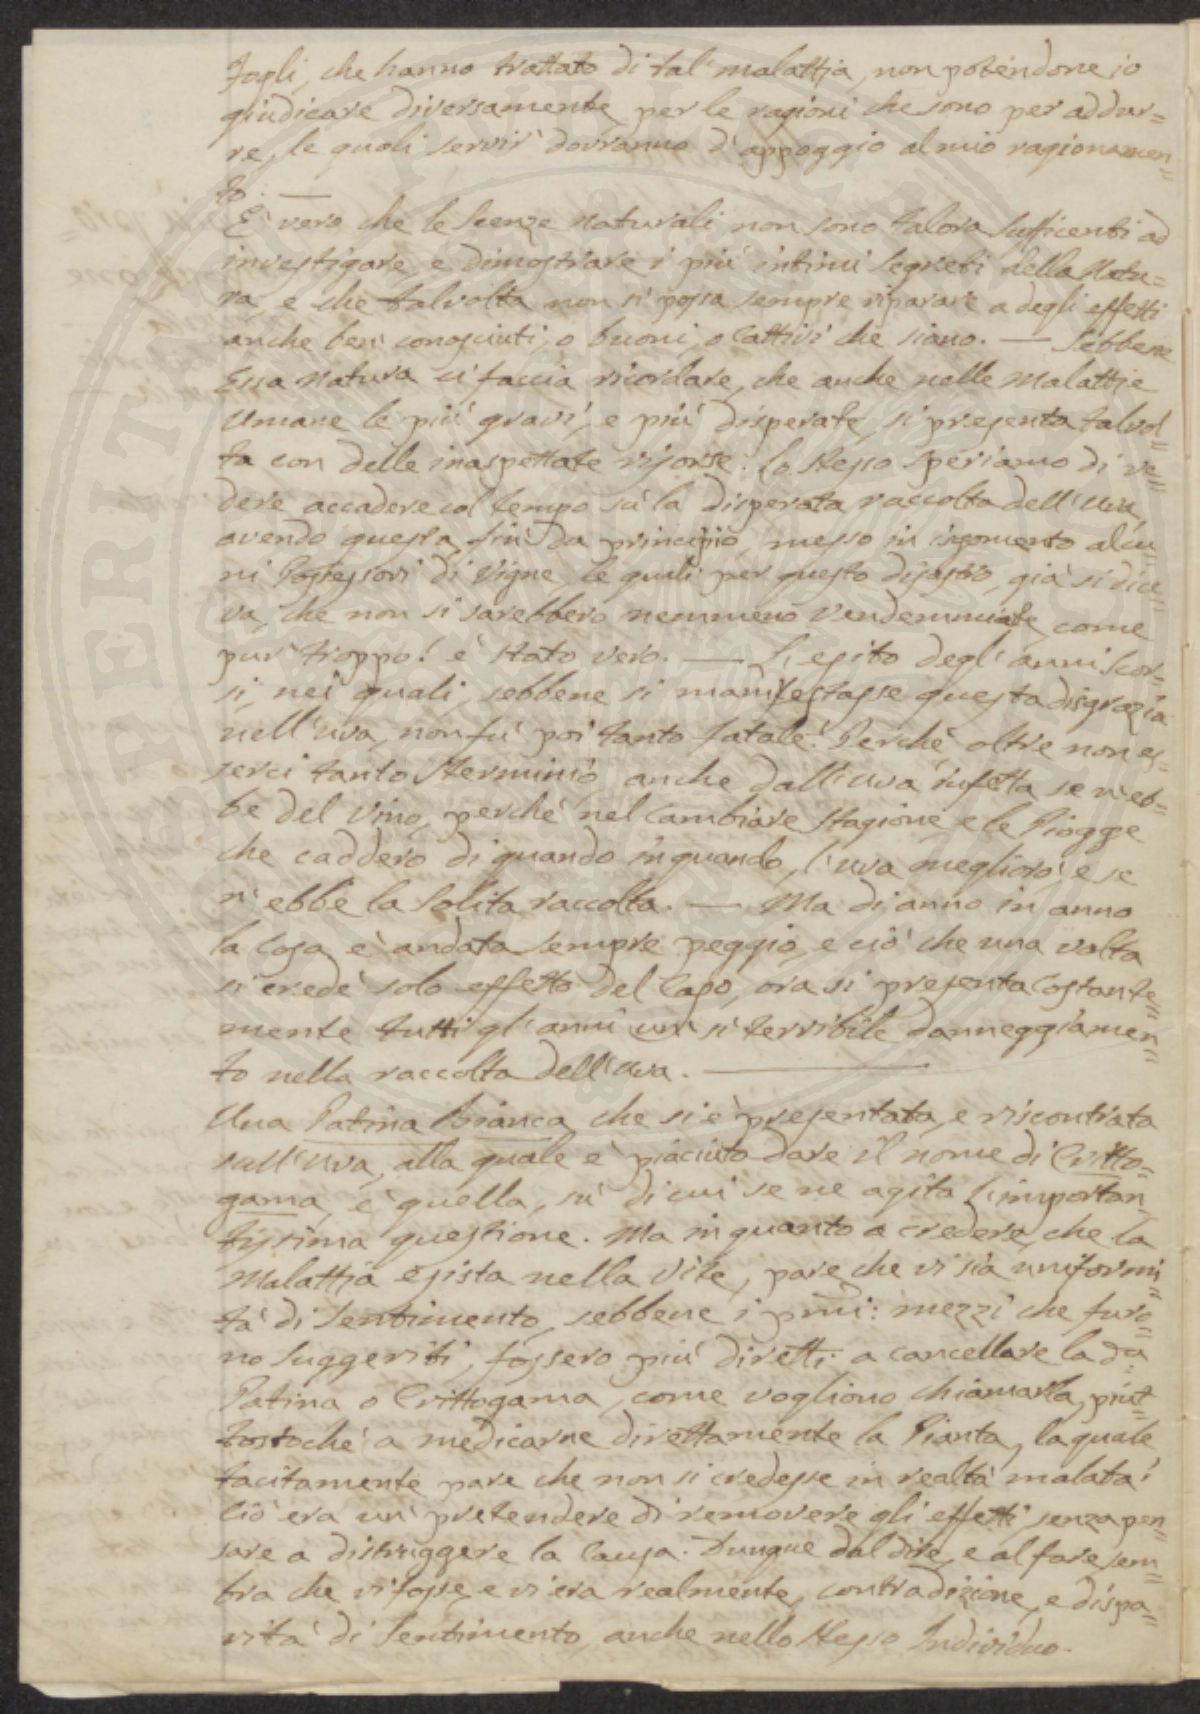 Fogli, che hanno trattato di tal' malattia, non potendone io
giudicare diversamente, per le ragioni che sono per addur=
re, le quali servir' dovranno d'appoggio al mio ragionamen=
to. —
È vero che le Scenze Naturali non sono talora sufficenti ad
investigare, e dimostrare i più intimi segreti della Natu=
ra, e che talvolta non si possa sempre riparare a degli effetti
anche ben' conosciuti, o buoni, o Cattivi che siano. — Sebbene
Essa Natura ci faccia ricordare, che anche nelle Malattie
Umane le più gravi, e più disperate, si presenta talvol=
ta con delle inaspettate risorse. Lo stesso speriamo di ve=
dere accadere col tempo sù la disperata raccolta dell'Uva,
avendo questa, fin' da principio, messo in isgomento alcu=
ni Possessori di Vigne, le quali per questo disastro, già si dice=
va, che non si sarebbero nemmeno Vendemmiate, come
pur' troppo! è stato vero. — L'esito degl'anni scor=
si, nei quali, sebbene si manifestasse questa disgrazia
nell'uva, non fu' poi tanto fatale! Perchè oltre non es=
serci tanto sterminio, anche dall'uva infetta se n'eb=
be del Vino, perchè nel Cambiare Stagione, e le Piogge
che caddero di quando in quando, l'uva megliorò e se
n'ebbe la Solita raccolta. — Ma di anno in anno
la Cosa è andata sempre peggio, e ciò che una volta
si crede' solo effetto del Caso, ora si presenta Costante=
mente tutti gl'anni un' sì terribile danneggiamen=
to nella raccolta dell'uva. —
Una Patina bianca, che si è presentata, e riscontrata
sull'Uva, alla quale è piaciuto dare il nome di Critto=
gama, è quella, sù di cui se ne agita l'importan=
tissima questione. Ma in quanto a credere, che la
Malattia esista nella Vite, pare che vi sia uniformi=
tà di Sentimento, sebbene i pmi: mezzi che furo=
no Suggeriti, fossero più diretti a cancellare la da
Patina o Crittogama, come vogliono chiamarla, piut=
tostochè a medicarne direttamente la Pianta, la quale
tacitamente pare che non si credesse in realtà malata!
Ciò era un' pretendere di removere gli effetti senza pen=
sare a distruggere la Causa. Dunque dal dire, e al fare sem=
bra che vi fosse, e vi era realmente, contradizione, e dispa=
rità di Sentimento, anche nello stesso Individuo.
PERITAT